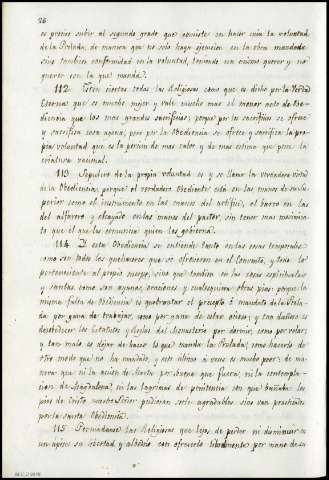 26
es preciso subir al segundo grado que consiste en hacer suia la voluntad
de la Prelada, de manera que no solo haya ejecucion en la obra mandada
sino tambien conformidad en la voluntad, teniendo un mismo querer y no
querer con la que manda.
112 Esten ciertas todas las Religiosas como que es dicho por la Verdad
Eterna que es mucho mejor y vale mucho mas el menor acto de Obe-
diencia que los mas grandes sacrificios; porque por los sacrificios se ofrece
y sacrifica cosa agena; pero por la Obediencia se ofrece y sacrifica la pro-
pia voluntad que es la porcion de mas valor y de mas estima que tiene la
criatura racional.
113 Sepulcro de la propia voluntad es y se llama la verdadera virtud
de la Obediencia, porque el verdadero Obediente está en las manos de su Su-
perior como el instrumento en las manos del artifice, el barro en las
del alfarero y el cayado en las manos del pastor, sin tener mas movimien-
to que el que les comunica quien los gobierna.
114 Y esta Obediencia se entiende tanto en las cosas temporales
como son todos los quehaceres que se ofrecieren en el Convento, y todo lo
perteneciente al propio cuerpo, sino que tambien en las cosas espirituales
y santas como son ayunos, oraciones y cualesquiera obras pias: porque la
misma falta de Obediencia es quebrantar el precepto ó mandato de la Prela-
da por gana de trabajar, como por gana de estar ociosa; y tan dañoso es
desobedecer los Estatutos y Reglas del Monasterio por dormir, como por velar;
y tan malo es dejar de hacer lo que manda la Prelada, como hacerlo de
otro modo que ha mandado, y este ultimo á veces es mucho peor: de ma-
nera que ni la accion de Marta por buena que fuera; ni la contempla-
cion de Magdalena; ni las lagrimas de penitencia con que bañaba los
pies de Cristo nuestro Señor pudieran serle agradables sino van practicadas
por la santa Obediencia.
115 Persuadanse las Religiosas que lejos de perder ni disminuir en
un apice su libertad y albedrio con ofrecerlo totalmente por mano de su